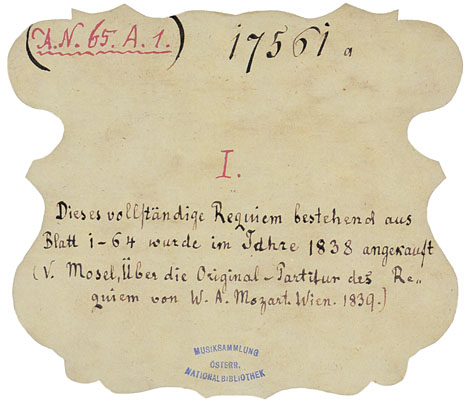 (A.N. 65. A. 1.) 17561 a
I.
Dieses vollständige Requiem bestehend aus
Blatt 1-64 wurde im Jahre 1838 angekauft
(V. Mosel, Über die Original-Partitur des Re-
quiem von W. A. Mozart. Wien. 1839.)
MUSIKSAMMLUNG
ÖSTERR.
NATIONALBIBLIOTHEK